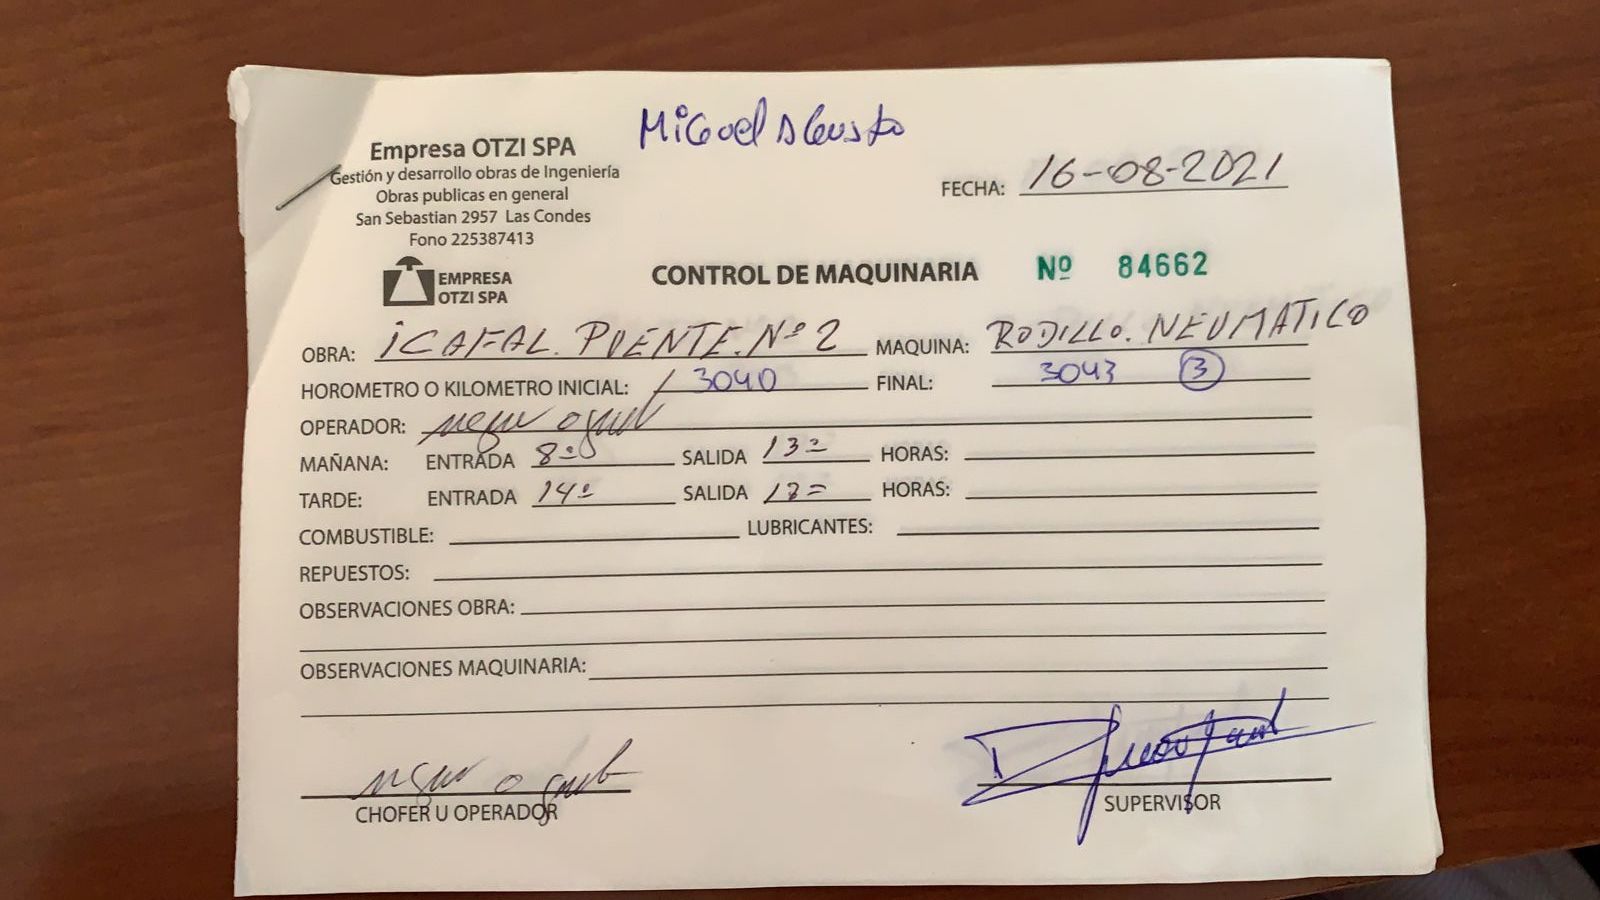 Miguel Agusto
Empresa OTZI SPA
Gestión y desarrollo obras de Ingeniería
Obras publicas en general
San Sebastian 2957 Las Condes
Fono 225387413
EMPRESA
OTZI SPA
FECHA: 16-08-2021
CONTROL DE MAQUINARIA Nº 84662
OBRA: iCAFAL. PUENTE. Nº 2 MAQUINA: RODILLO. NEUMATICO
HOROMETRO O KILOMETRO INICIAL: 3040 FINAL: 3043 3
OPERADOR:
MAÑANA: ENTRADA 8º SALIDA 13º HORAS:
TARDE: ENTRADA 14º SALIDA 18= HORAS:
COMBUSTIBLE: LUBRICANTES:
REPUESTOS:
OBSERVACIONES OBRA:
OBSERVACIONES MAQUINARIA:
CHOFER U OPERADOR SUPERVISOR